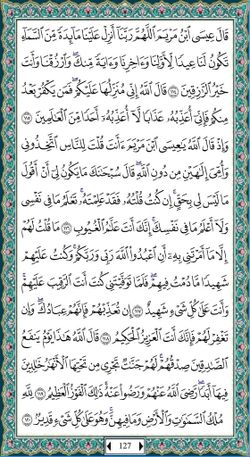 قَالَ عِيسَى ابْنُ مَرْيَمَ اللَّهُمَّ رَبَّنَا أَنزِلْ عَلَيْنَا مَائِدَةً مِّنَ السَّمَاءِ
تَكُونُ لَنَا عِيدًا لِّأَوَّلِنَا وَآخِرِنَا وَآيَةً مِّنكَ وَارْزُقْنَا وَأَنتَ
خَيْرُ الرَّازِقِينَ ﴿١١٤﴾ قَالَ اللَّهُ إِنِّي مُنَزِّلُهَا عَلَيْكُمْ فَمَن يَكْفُرْ بَعْدُ
مِنكُمْ فَإِنِّي أُعَذِّبُهُ عَذَابًا لَّا أُعَذِّبُهُ أَحَدًا مِّنَ الْعَالَمِينَ ﴿١١٥﴾
وَإِذْ قَالَ اللَّهُ يَا عِيسَى ابْنَ مَرْيَمَ أَأَنتَ قُلْتَ لِلنَّاسِ اتَّخِذُونِي
وَأُمِّيَ إِلَٰهَيْنِ مِن دُونِ اللَّهِ قَالَ سُبْحَانَكَ مَا يَكُونُ لِي أَنْ أَقُولَ
مَا لَيْسَ لِي بِحَقٍّ إِن كُنتُ قُلْتُهُ فَقَدْ عَلِمْتَهُ تَعْلَمُ مَا فِي نَفْسِي
وَلَا أَعْلَمُ مَا فِي نَفْسِكَ إِنَّكَ أَنتَ عَلَّامُ الْغُيُوبِ ﴿١١٦﴾ مَا قُلْتُ لَهُمْ
إِلَّا مَا أَمَرْتَنِي بِهِ أَنِ اعْبُدُوا اللَّهَ رَبِّي وَرَبَّكُمْ وَكُنتُ عَلَيْهِمْ
شَهِيدًا مَّا دُمْتُ فِيهِمْ فَلَمَّا تَوَفَّيْتَنِي كُنتَ أَنتَ الرَّقِيبَ عَلَيْهِمْ
وَأَنتَ عَلَىٰ كُلِّ شَيْءٍ شَهِيدٌ ﴿١١٧﴾ إِن تُعَذِّبْهُمْ فَإِنَّهُمْ عِبَادُكَ وَإِن
تَغْفِرْ لَهُمْ فَإِنَّكَ أَنتَ الْعَزِيزُ الْحَكِيمُ ﴿١١٨﴾ قَالَ اللَّهُ هَٰذَا يَوْمُ يَنفَعُ
الصَّادِقِينَ صِدْقُهُمْ لَهُمْ جَنَّاتٌ تَجْرِي مِن تَحْتِهَا الْأَنْهَارُ خَالِدِينَ
فِيهَا أَبَدًا رَّضِيَ اللَّهُ عَنْهُمْ وَرَضُوا عَنْهُ ذَٰلِكَ الْفَوْزُ الْعَظِيمُ ﴿١١٩﴾ لِلَّهِ
مُلْكُ السَّمَاوَاتِ وَالْأَرْضِ وَمَا فِيهِنَّ وَهُوَ عَلَىٰ كُلِّ شَيْءٍ قَدِيرٌ ﴿١٢٠﴾
127